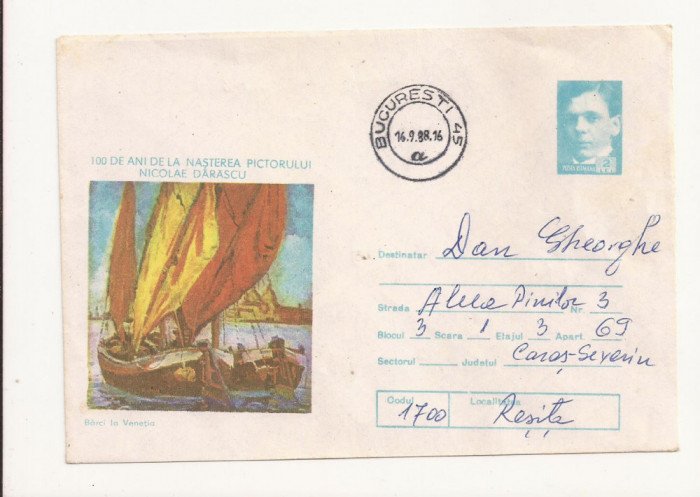 BUCUREȘTI 45
16.9.88.16
a
2
POȘTA ROMÂNĂ
100 DE ANI DE LA NAȘTEREA PICTORULUI
NICOLAE DĂRĂSCU
Destinatar Dan Gheorghe
Strada Aleea Pinilor Nr. 3
Blocul 3 Scara 1 Etajul 3 Apart. 69
Sectorul Județul Caraș-Severin
Codul 1700 Localitatea Reșița
Bărci la Veneția